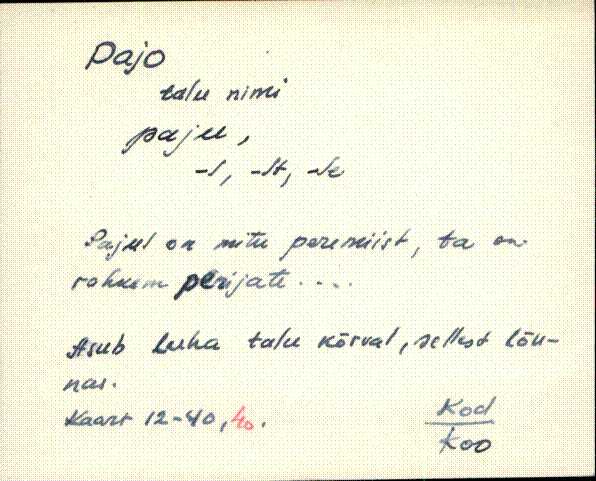 Pajo
talu nimi
paju,
-s, -st, -se
Pajul on mitu peremiist, ta on
rohkem perijati....
Asub Luha talu kõrval, sellest lõu-
nas.
Kaart 12-40, 40.
Kod
Koo